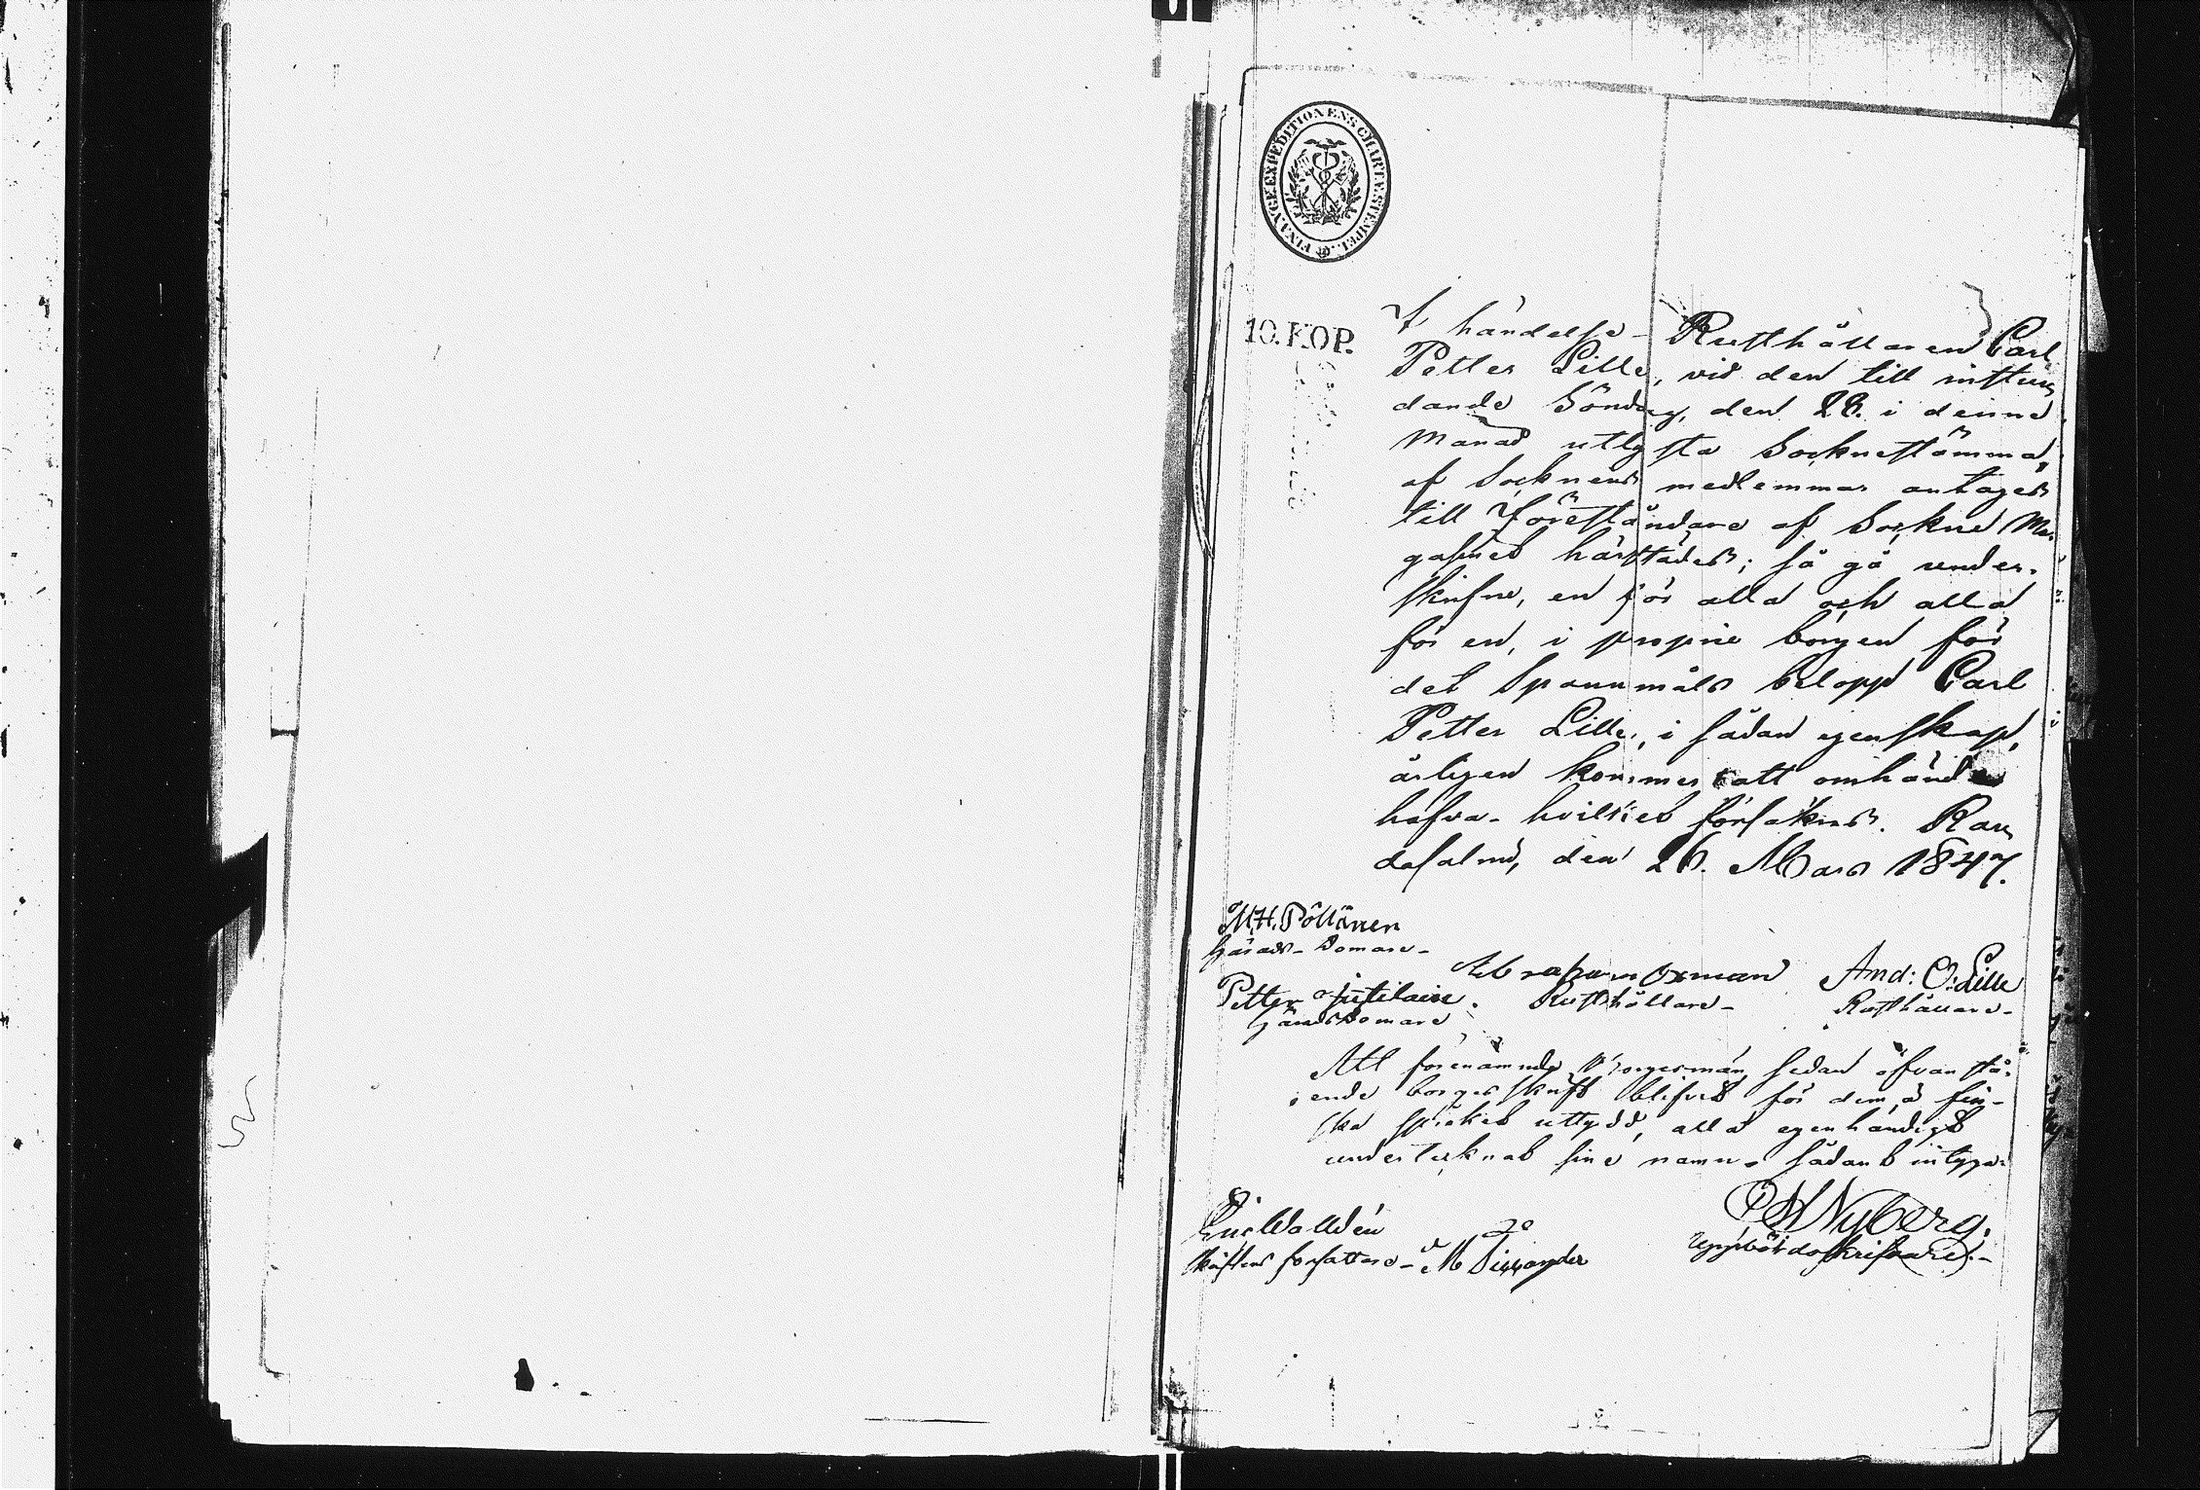 FINANCE EXPEDITIONENS CHARTÆ STEMPEL
10. KOP.
I händelse Rusthållaren Carl
Petter Lille, vid den till instun
dande Söndag, den 28. i denne
Månad utlysta Socknestämma,
af Socknens medlemmar antages
till Föreståndare af Sockne Ma-
gasinet härstädes; så gå under-
skrifne, en för alla och alla
för en, i proprie borgen för
det Spannmåls belopp Carl
Petter Lille, i sådan egenskap,
årligen kommer att omhänder
hafva, hvilket försäkras. Ran
dasalmi, den 26. Mars 1847.
M.H. Pöllänen
Härads-Domare
Abraham Oxman And: O: Lille
Petter Rusthållare Rusthållare
Häradsdomare
Att förenämnde Borgesmän, sedan ofvanstå-
ende borgesskrift blifvit för dem, å fin-
ska språket uttydd, alla egenhändigt
undertecknat sine namn, sådant intygar
Nyberg.
Eric Walldén
Skriftens författare Uppbördsskrifvare